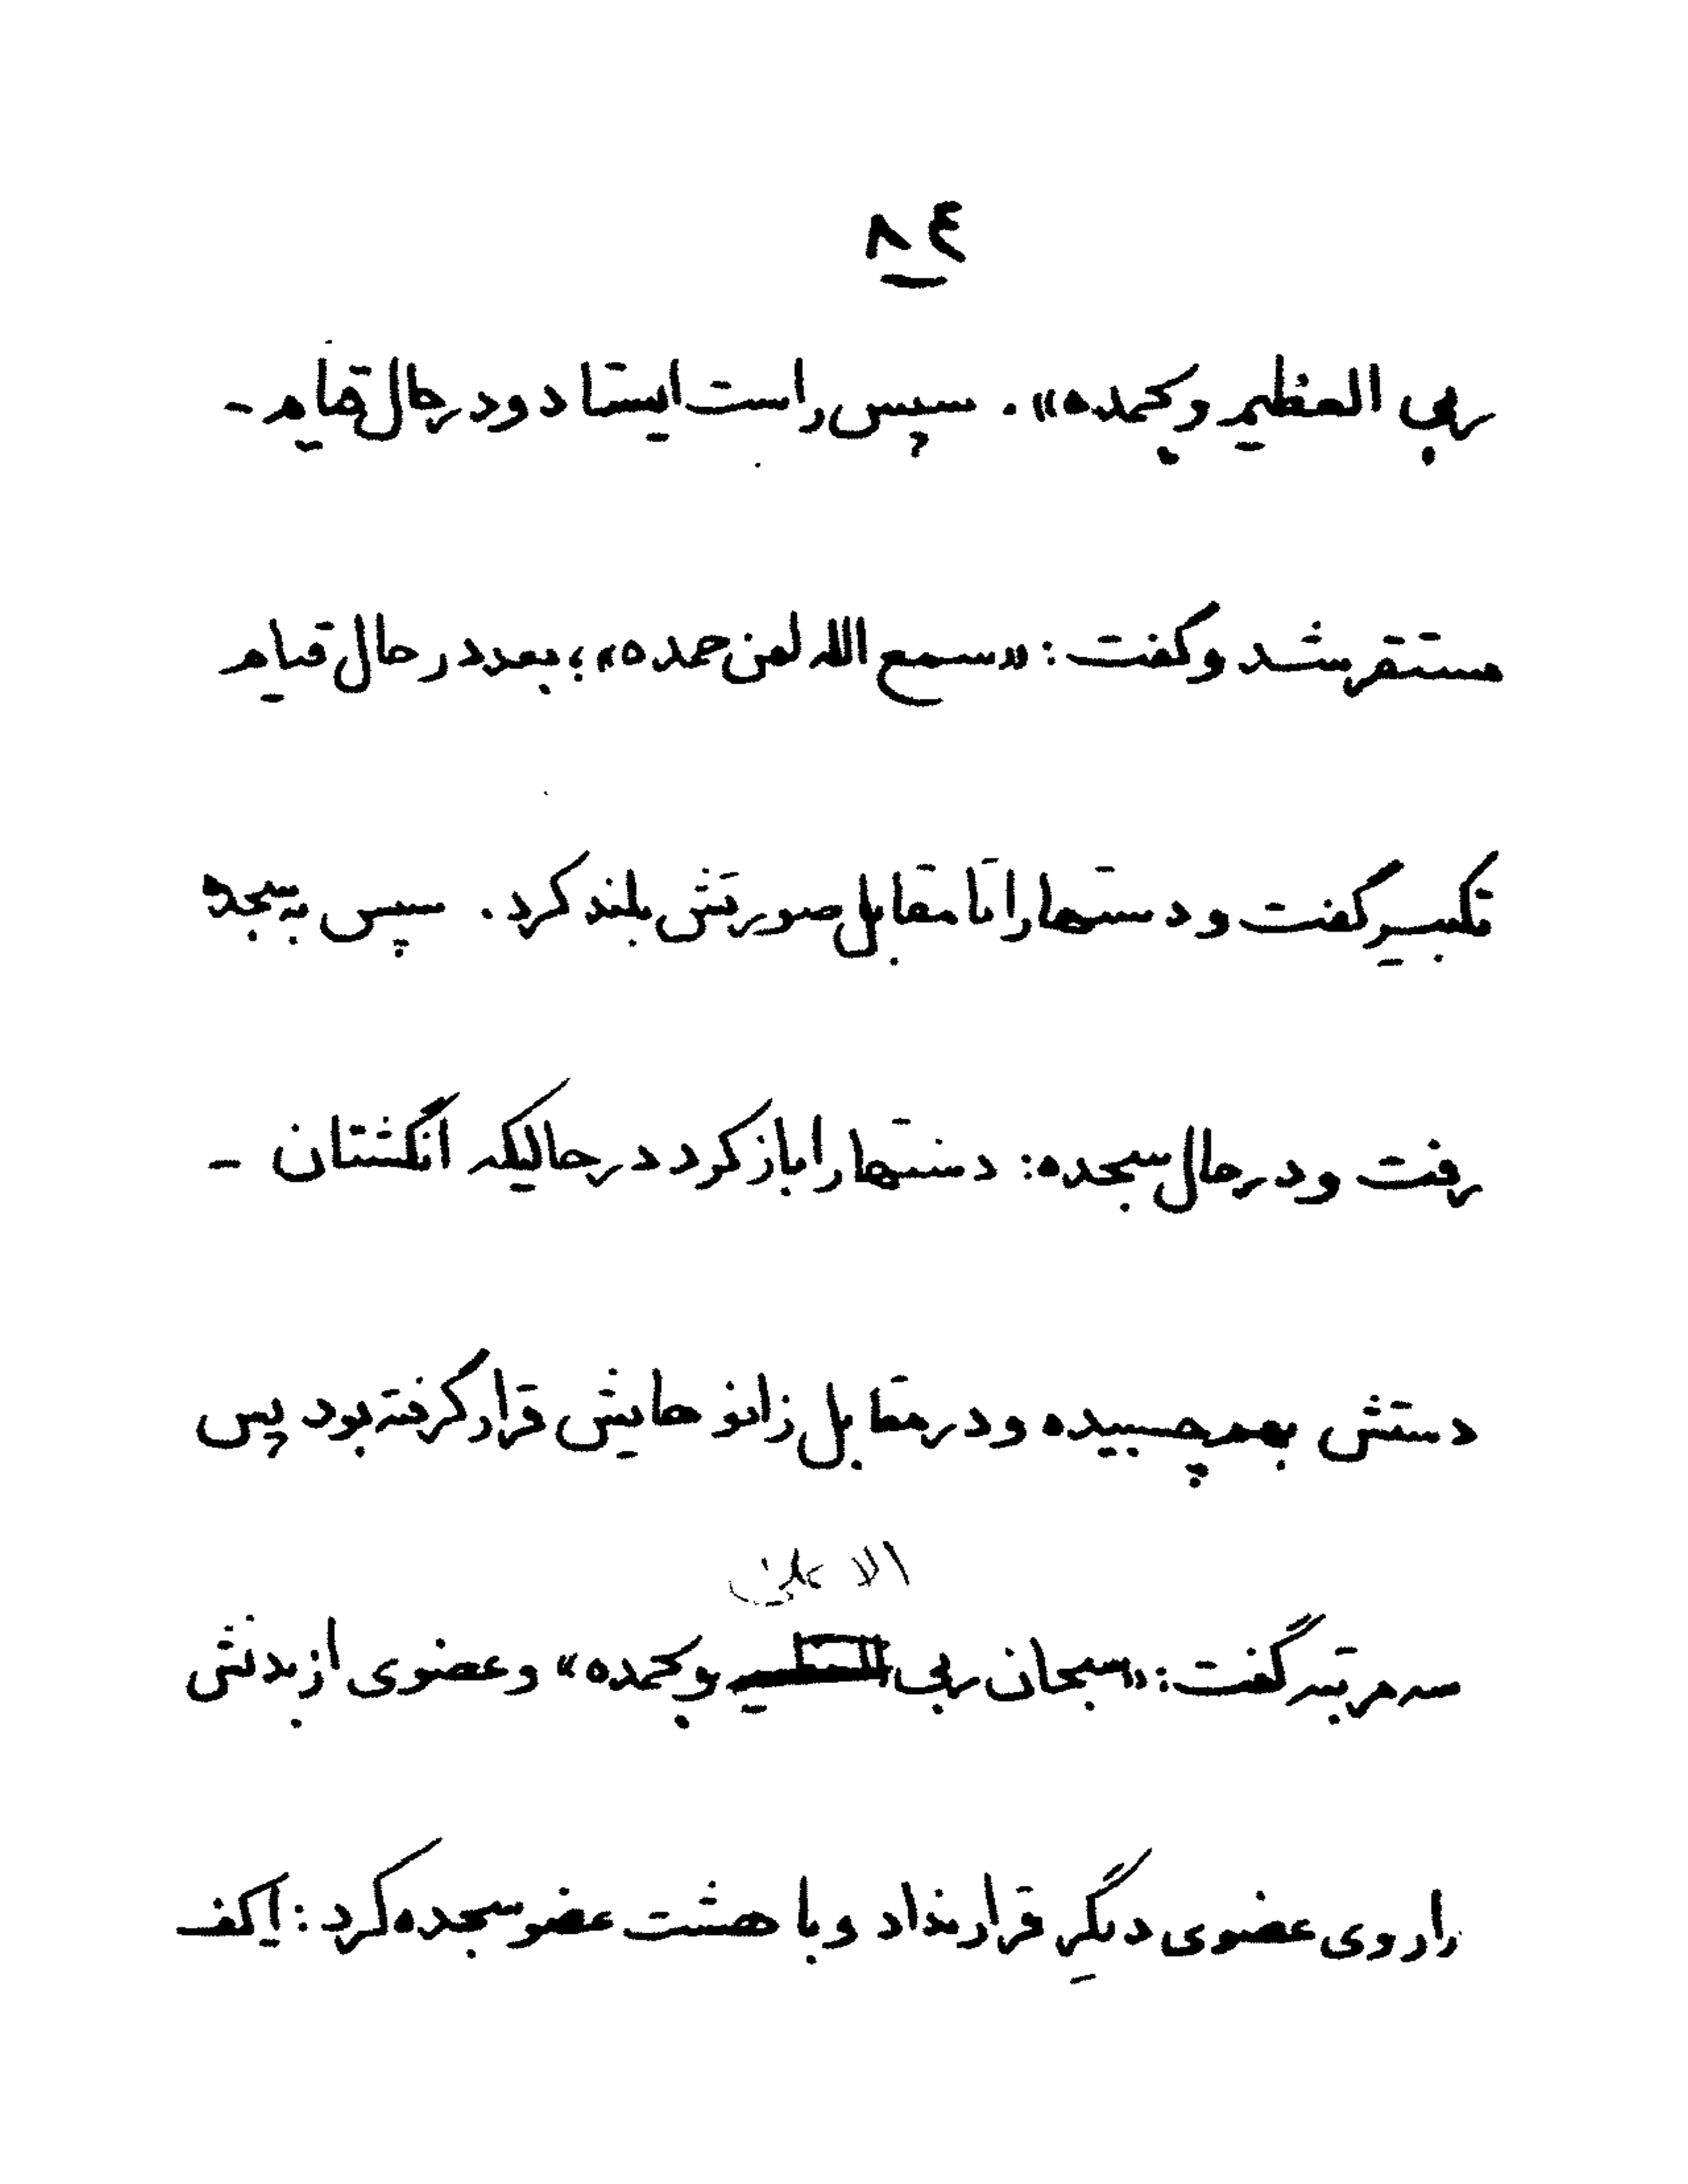 ٨٤
ربی العظیم وبحمده». سپس راست ایستاد ودرحال قیام -
مستقر شد وگفت: «سمع الله لمن حمده»؛ بعد در حال قیام
تکبیر گفت و دستها را تا مقابل صورتش بلند کرد. سپس به سجده
رفت ودرحال سجده: دستها را باز کرد درحالیکه انگشتان -
دستش بهم چسبیده ودرمقابل زانوهایش قرار گرفته بود پس
الاعلی
سه مرتبه گفت: «سبحان ربی العظیم وبحمده» وعضوی از بدنش
را روی عضوی دیگر قرار نداد وبا هشت عضو سجده کرد: ۱کف